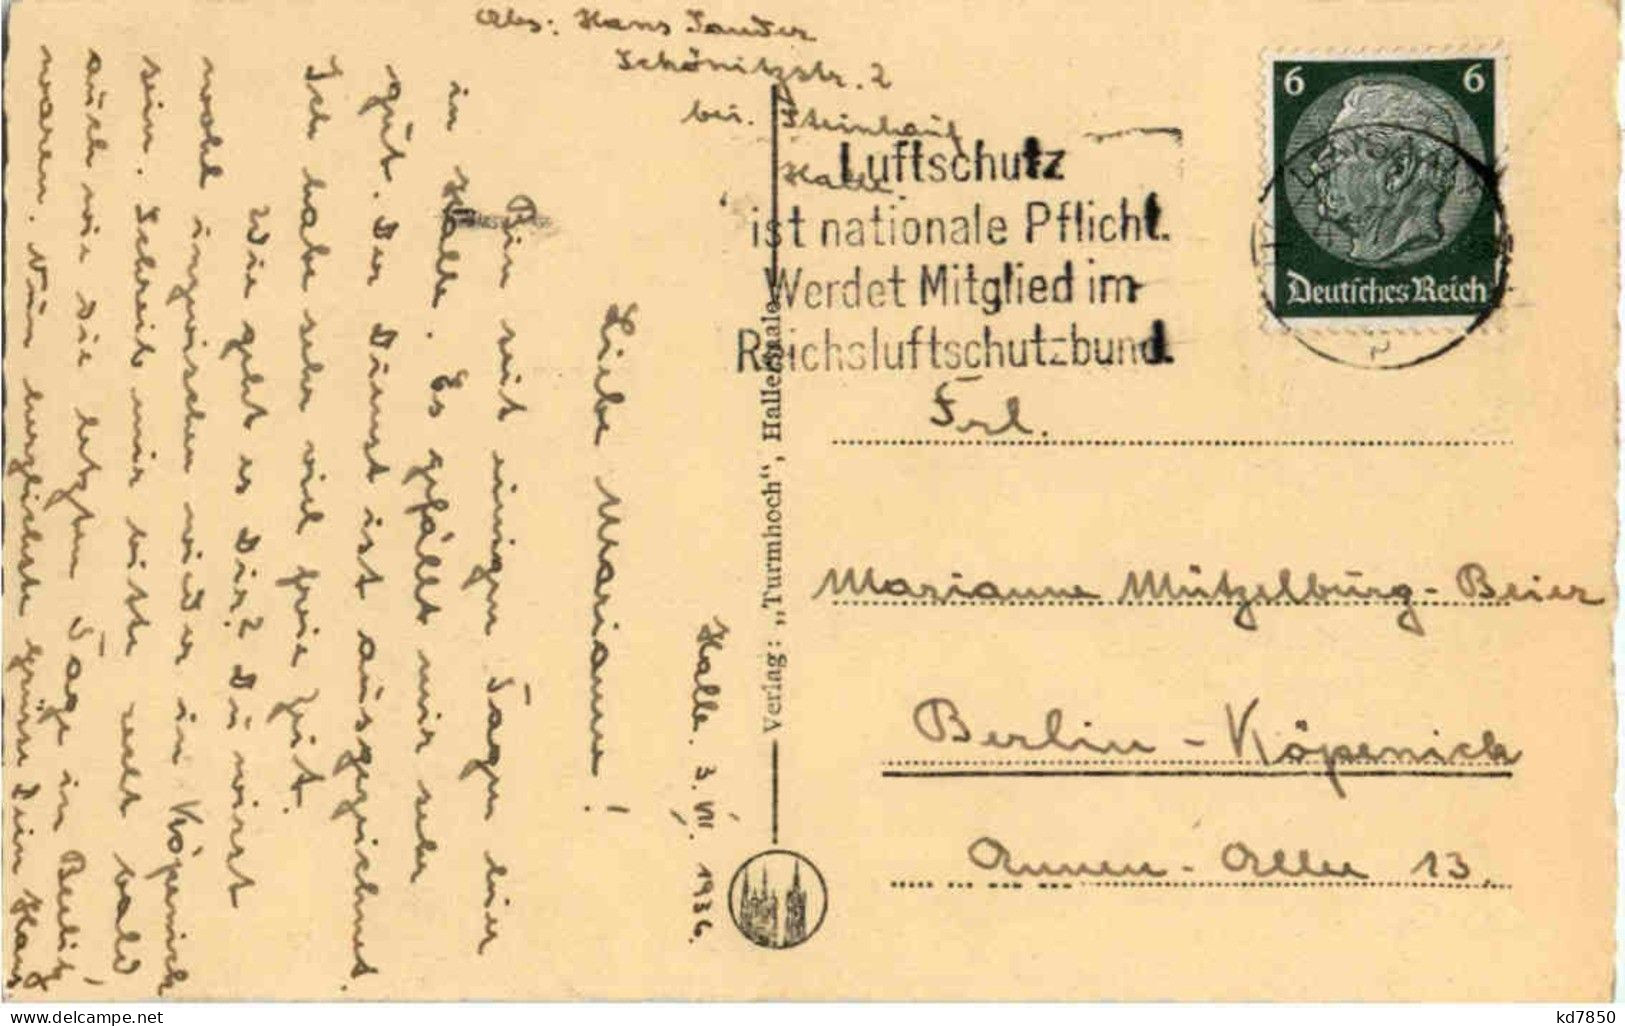 Abs: Hans Sander
Schönitzstr. 2
bei. Steinhauf
Halle
6 6
Deutsches Reich
Luftschutz
ist nationale Pflicht.
Werdet Mitglied im
Reichsluftschutzbund.
Frl.
Marianne Mützelburg-Beier
Berlin-Köpenick
Annen-Allee 13.
Verlag: „Turmhoch“, Halle-Saale
Halle. 3. VII. 1936.
Liebe Marianne!
Bin seit einigen Tagen hier
in Halle. Es gefällt mir sehr
gut. Der Dienst ist ausgezeichnet.
Ich habe sehr viel freie Zeit.
Wie geht es Dir? Du wirst
wohl inzwischen wieder in Köpenick
sein. Schreib mir bitte recht bald
auch wie die letzten Tage in
waren. Nun herzlichste Grüße Dein Hans
kd7850